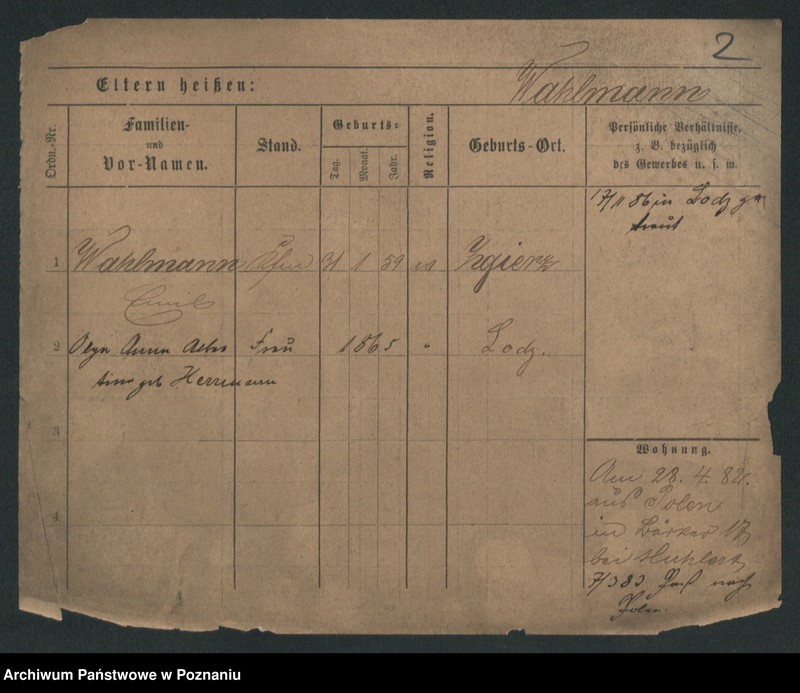 2
Eltern heißen:
Wahlmann
Ordn.-Nr.
Familien-
und
Vor-Namen.
Stand.
Geburts-
Tag.
Monat.
Jahr.
Religion.
Geburts-Ort.
Persönliche Verhältnisse,
z. B. bezüglich
des Gewerbes u. s. w.
17/11 86 in Lodz ge
traut
1 Wahlmann Kfm 31 1 59 ev Zgierz
Emil
2 Olga Anna Alber Frau 1865 " Lodz.
tine geb Herrmann
3
4
Wohnung.
Am 28. 4. 82.
aus Polen
in 17
bei
7/3 83 Paß nach
Polen.
Archiwum Państwowe w Poznaniu